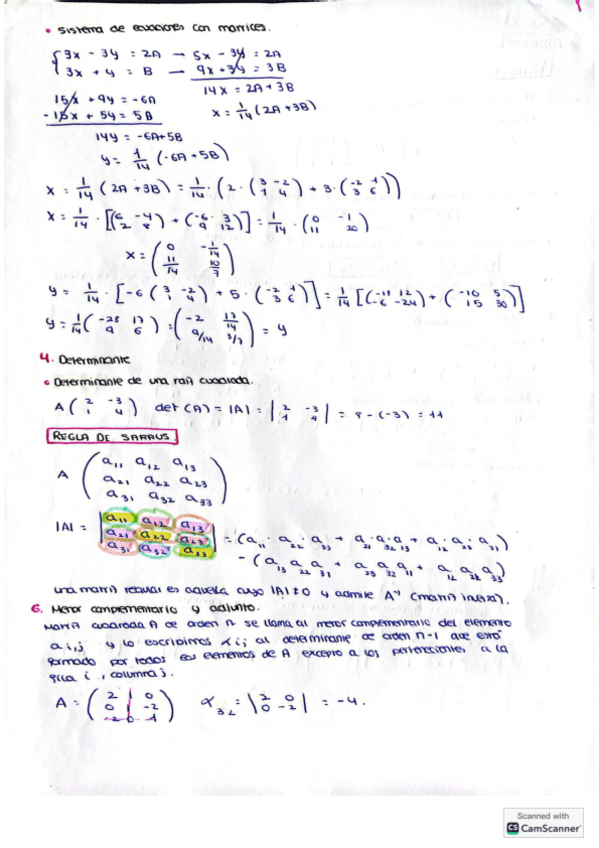 • Sistema de ecuaciones con matrices.
{3x - 3y = 2A → 5x - 3y = 2A
3x + y = B — 9x + 3y = 3B
14x = 2A + 3B
x = 1/14 (2A + 3B)
15x + 9y = -6A
- 15x + 5y = 5B
14y = -6A + 5B
y = 1/14 (-6A + 5B)
x = 1/14 (2A + 3B) = 1/14 · (2 · (3 -2 / 1 4) + 3 · (-2 1 / 3 6))
x = 1/14 · [(6 -4 / 2 8) + (-6 3 / 9 12)] = 1/14 · (0 -1 / 11 20)
x = (0 -1/14 / 11/14 10/7)
y = 1/14 · [-6 (3 -2 / 1 4) + 5 · (-2 1 / 3 6)] = 1/14 [(-18 12 / -6 -24) + (-10 5 / 15 30)]
y = 1/14 (-28 17 / 9 6) = (-2 17/14 / 9/14 3/7) = y
4. Determinante
• Determinante de una raíz cuadrada.
A (2 -3 / 1 4) det (A) = |A| = |2 -3 / 1 4| = 8 - (-3) = 11
REGLA DE SARRUS
A (a11 a12 a13 / a21 a22 a23 / a31 a32 a33)
|A| = |a11 a12 a13 / a21 a22 a23 / a31 a32 a33| = (a11 · a22 a33 + a21 · a32 · a13 + a12 · a23 · a31)
- (a13 a22 a31 + a23 a32 a11 + a12 a21 a33)
una matriz regular es aquella cuyo |A| ≠ 0 y admite A⁻¹ (matriz inversa).
6. Menor complementario y adjunto.
Matriz cuadrada A de orden n se llama al menor complementario del elemento
a i,j y lo escribimos α i,j al determinante de orden n-1 que está
formado por todos los elementos de A excepto a los pertenecientes a la
fila i, columna j.
A = (2 1 0 / 0 1 -2 / -2 0 -1) α32 = |2 0 / 0 -2| = -4.
Scanned with
CS CamScanner